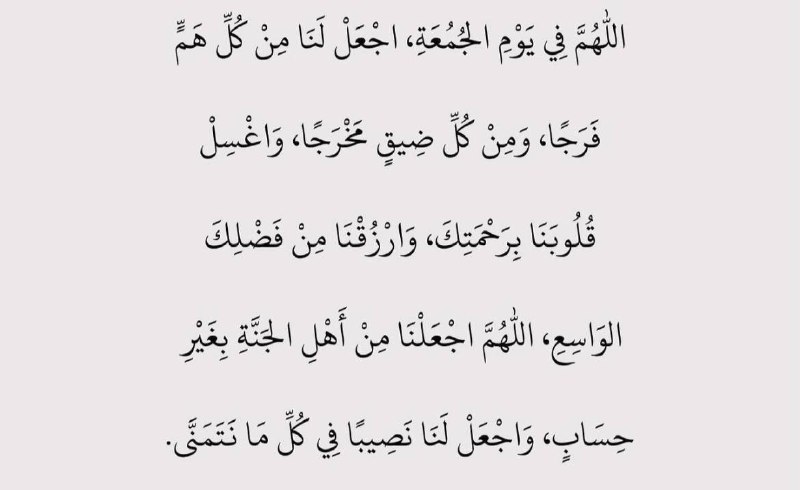 اللَّهُمَّ فِي يَوْمِ الجُمُعَةِ، اجْعَلْ لَنَا مِنْ كُلِّ هَمٍّ
فَرَجًا، وَمِنْ كُلِّ ضِيقٍ مَخْرَجًا، وَاغْسِلْ
قُلُوبَنَا بِرَحْمَتِكَ، وَارْزُقْنَا مِنْ فَضْلِكَ
الوَاسِعِ، اللَّهُمَّ اجْعَلْنَا مِنْ أَهْلِ الجَنَّةِ بِغَيْرِ
حِسَابٍ، وَاجْعَلْ لَنَا نَصِيبًا فِي كُلِّ مَا نَتَمَنَّى.